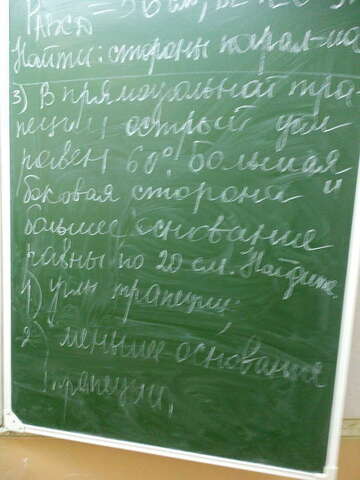 P ABCD = 56 см,
Найти: стороны парал-ма
3) В прямоугольной тра-
пеции острый угол
равен 60°, большая
боковая сторона и
большее основание
равны по 20 см. Найдите
1) углы трапеции;
2) меньшее основание
трапеции.